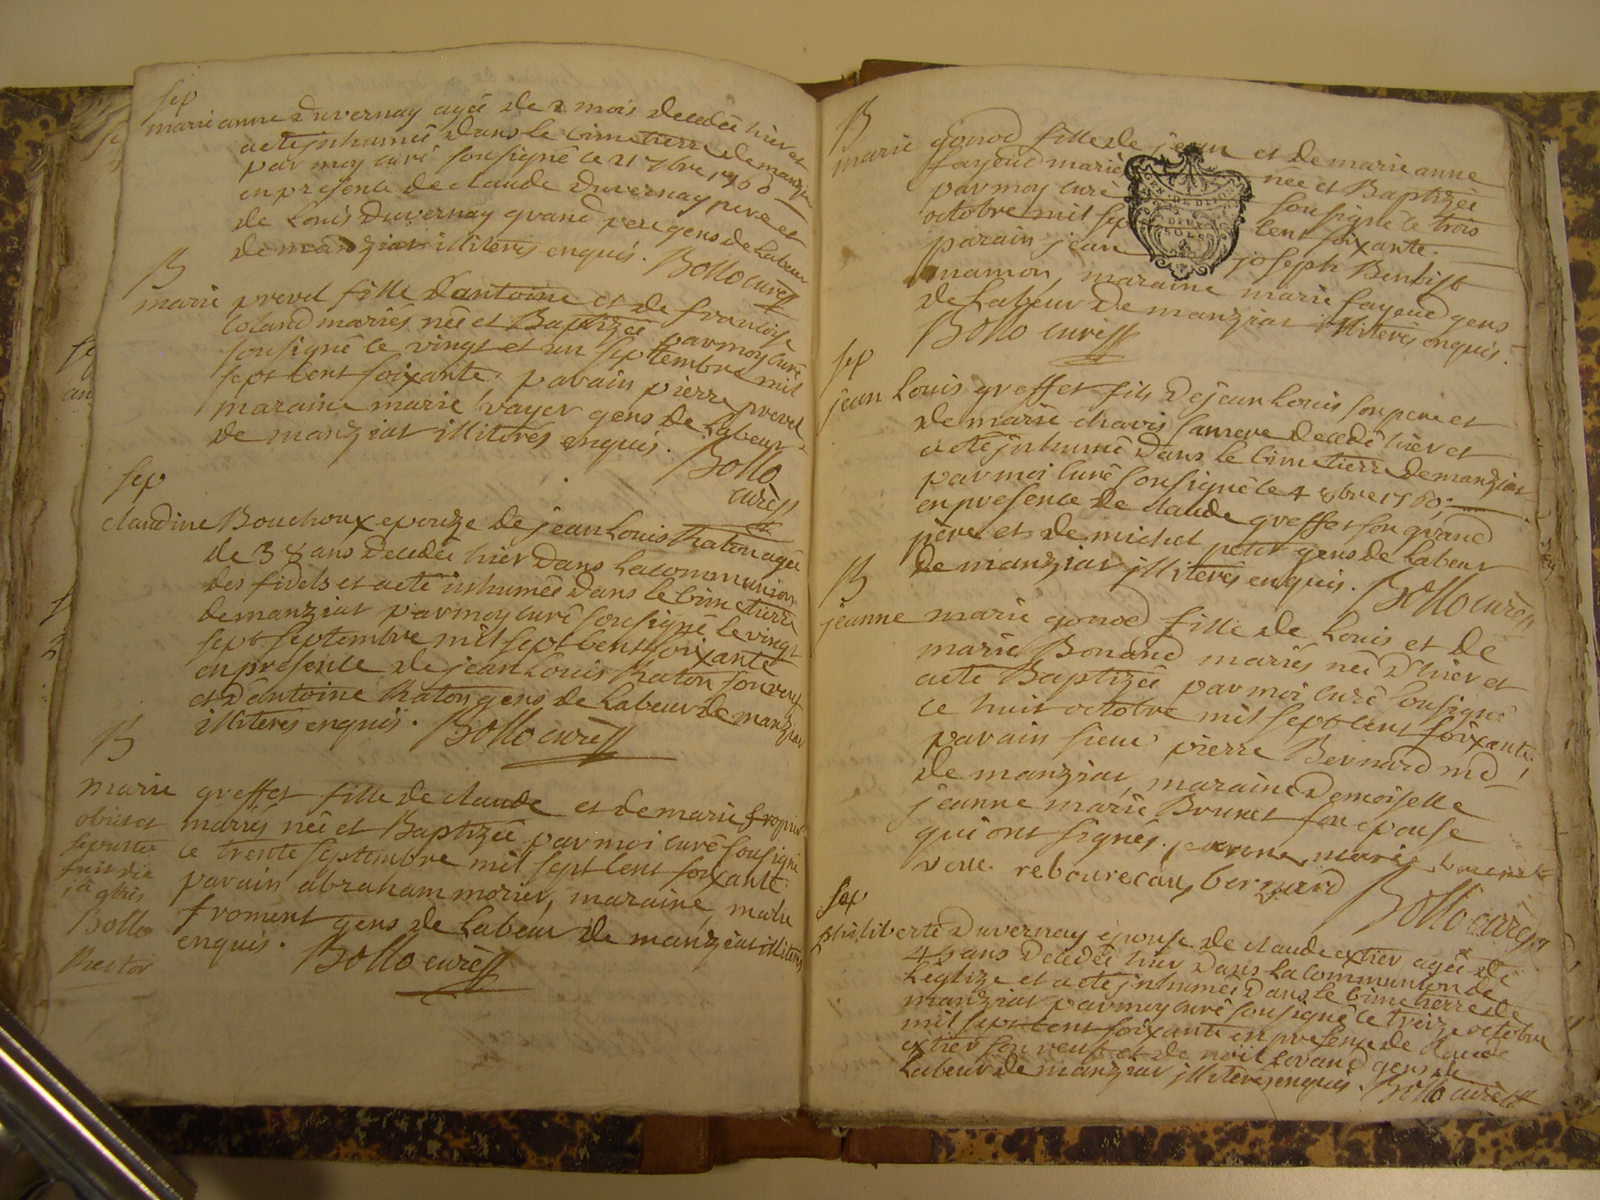 sep
marie anne Duvernay agée de 2 mois decedée hier et
a eté inhumée dans le cimetierre de manziat
par moy curé sousigné ce 21 7bre 1760
en presence de claude Duvernay pere et
de Louis Duvernay grand pere gens de labeur
de manziat illiteres enquis. Bollo curé
B
marie prevel fille d'antoine et de francoise
Coland mariés née et Baptizée par moy curé
sousigné ce vingt et un septembre mil
sept cent soixante. parain pierre prevel
maraine marie vayer gens de labeur
de manziat illiteres enquis. Bollo
curé
sep
claudine Bouchoux epouze de jean Louis Raton agée
de 38 ans decedée hier dans la communion
des fidels et a eté inhumée dans le cimetierre
de manziat par moy curé sousigné le vingt
sept septembre mil sept cent soixante
en presence de jean Louis Raton son veuf
et d'antoine Raton gens de labeur de manziat
illiteres enquis. Bollo curé
B
marie greffet fille de claude et de marie
mariés née et Baptizée par moi curé sousigné
ce trente septembre mil sept cent soixante
parain abraham morier, maraine, marie
froment gens de labeur de manziat illiteres
enquis. Bollo curé
obiit et
sepulta
fuit die
Bollo
Rector
B
marie gonod fille de jean et de marie anne
fayeud mariés née et Baptizée
par moy curé sousigné ce trois
octobre mil sept cent soixante.
parain jean joseph Benoist
mamon, maraine marie fayeud gens
de labeur de manziat illiterés enquis.
Bollo curé
sep
jean Louis greffet fils de jean Louis son pere et
de marie chavis sa mere decedé hier et
a eté inhumé dans le cimetierre de manziat
par moi curé sousigné ce 4 8bre 1760
en presence de claude greffet son grand
père et de michel petit gens de labeur
de manziat illiteres enquis. Bollo curé
B
jeanne marie gonod fille de Louis et de
marie Bonand mariés née d'hier et
a eté Baptizée par moi curé sousigné
ce huit octobre mil sept cent soixante.
parain sieur pierre Bernard md
de manziat, maraine Demoiselle
jeanne marie Brunet son epouse
qui ont signés. jeanne marie brunet
bernard Bollo curé
sep
philiberte Duvernay épouse de claude extier agée de
4 ans decedée hier dans la communion de
l'eglize et a eté inhumée dans le cimetierre de
manziat par moy curé sousigné ce treize octobre
mil sept cent soixante en presence de claude
extier son veuf et de noël gens de
labeur de manziat illiteres enquis. Bollo curé